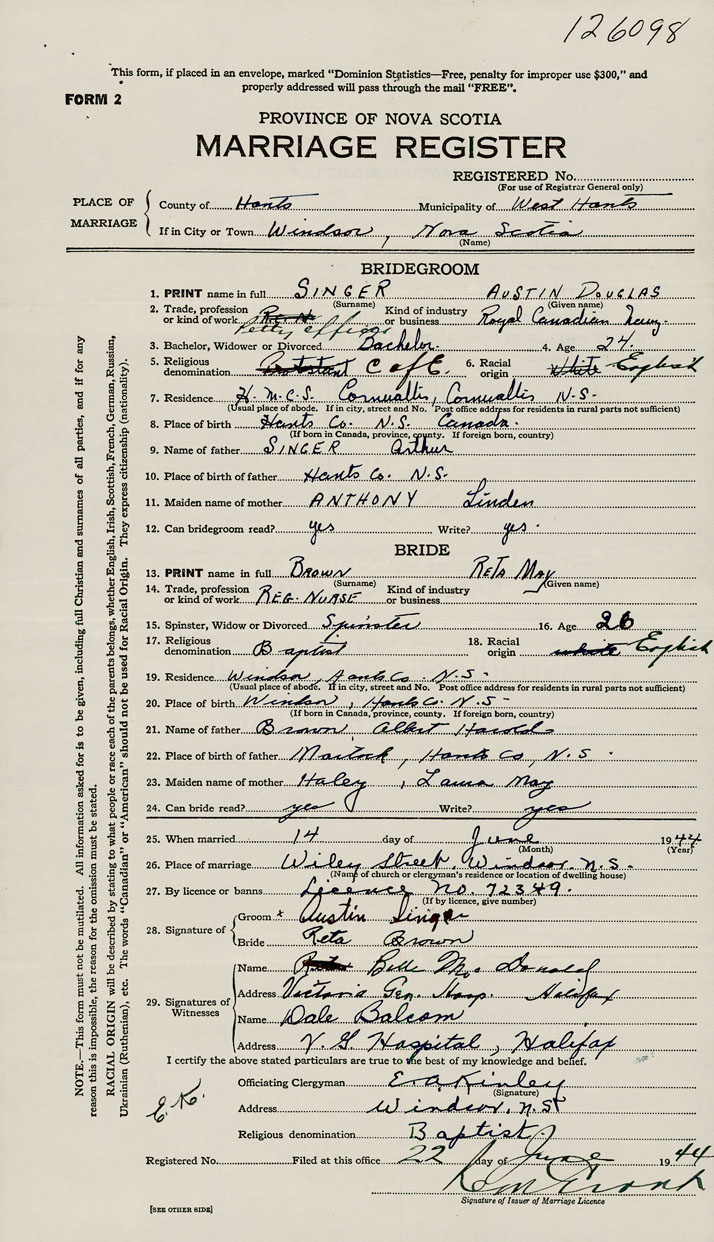 126098
This form, if placed in an envelope, marked "Dominion Statistics—Free, penalty for improper use $300," and
properly addressed will pass through the mail "FREE".
FORM 2
PROVINCE OF NOVA SCOTIA
MARRIAGE REGISTER
REGISTERED No.
(For use of Registrar General only)
PLACE OF MARRIAGE
County of Hants Municipality of West Hants
If in City or Town Windsor, Nova Scotia
(Name)
BRIDEGROOM
1. PRINT name in full SINGER AUSTIN DOUGLAS
(Surname) (Given name)
2. Trade, profession or kind of work R.C.N. Petty officer Kind of industry or business Royal Canadian Navy
3. Bachelor, Widower or Divorced Bachelor. 4. Age 24.
5. Religious denomination Protestant C of E. 6. Racial origin White English
7. Residence H.M.C.S. Cornwallis, Cornwallis N.S.
(Usual place of abode. If in city, street and No. Post office address for residents in rural parts not sufficient)
8. Place of birth Hants Co. N.S. Canada.
(If born in Canada, province, county. If foreign born, country)
9. Name of father SINGER Arthur
10. Place of birth of father Hants Co. N.S.
11. Maiden name of mother ANTHONY Linden
12. Can bridegroom read? yes Write? yes.
BRIDE
13. PRINT name in full BROWN RETA MAY
(Surname) (Given name)
14. Trade, profession or kind of work REG. NURSE Kind of industry or business
15. Spinster, Widow or Divorced Spinster 16. Age 26
17. Religious denomination Baptist 18. Racial origin white English
19. Residence Windsor, Hants Co. N.S.
(Usual place of abode. If in city, street and No. Post office address for residents in rural parts not sufficient)
20. Place of birth Windsor, Hants Co. N.S.
(If born in Canada, province, county. If foreign born, country)
21. Name of father Brown, Albert Harold
22. Place of birth of father Martock, Hants Co, N.S.
23. Maiden name of mother Haley, Laura May
24. Can bride read? yes Write? yes
25. When married 14 day of June 1944
(Month) (Year)
26. Place of marriage Wiley Street, Windsor N.S.
(Name of church or clergyman's residence or location of dwelling house)
27. By licence or banns Licence No. 72349.
(If by licence, give number)
28. Signature of
Groom x Austin Singer
Bride Reta Brown
29. Signatures of Witnesses
Name Belle McDonald
Address Victoria Gen. Hosp. Halifax
Name Dale Balcom
Address V. G Hospital, Halifax
I certify the above stated particulars are true to the best of my knowledge and belief.
Officiating Clergyman E. A. Kinley
(Signature)
Address Windsor, N.S.
E.K.
Religious denomination Baptist
Registered No. Filed at this office 22 day of June 1944
Signature of Issuer of Marriage Licence
[SEE OTHER SIDE]
NOTE.—This form must not be mutilated. All information asked for is to be given, including full Christian and surnames of all parties, and if for any
reason this is impossible, the reason for the omission must be stated.
RACIAL ORIGIN will be described by stating to what people or race each of the parents belongs, whether English, Irish, Scottish, French, German, Russian,
Ukrainian (Ruthenian), etc. The words "Canadian" or "American" should not be used for Racial Origin. They express citizenship (nationality).